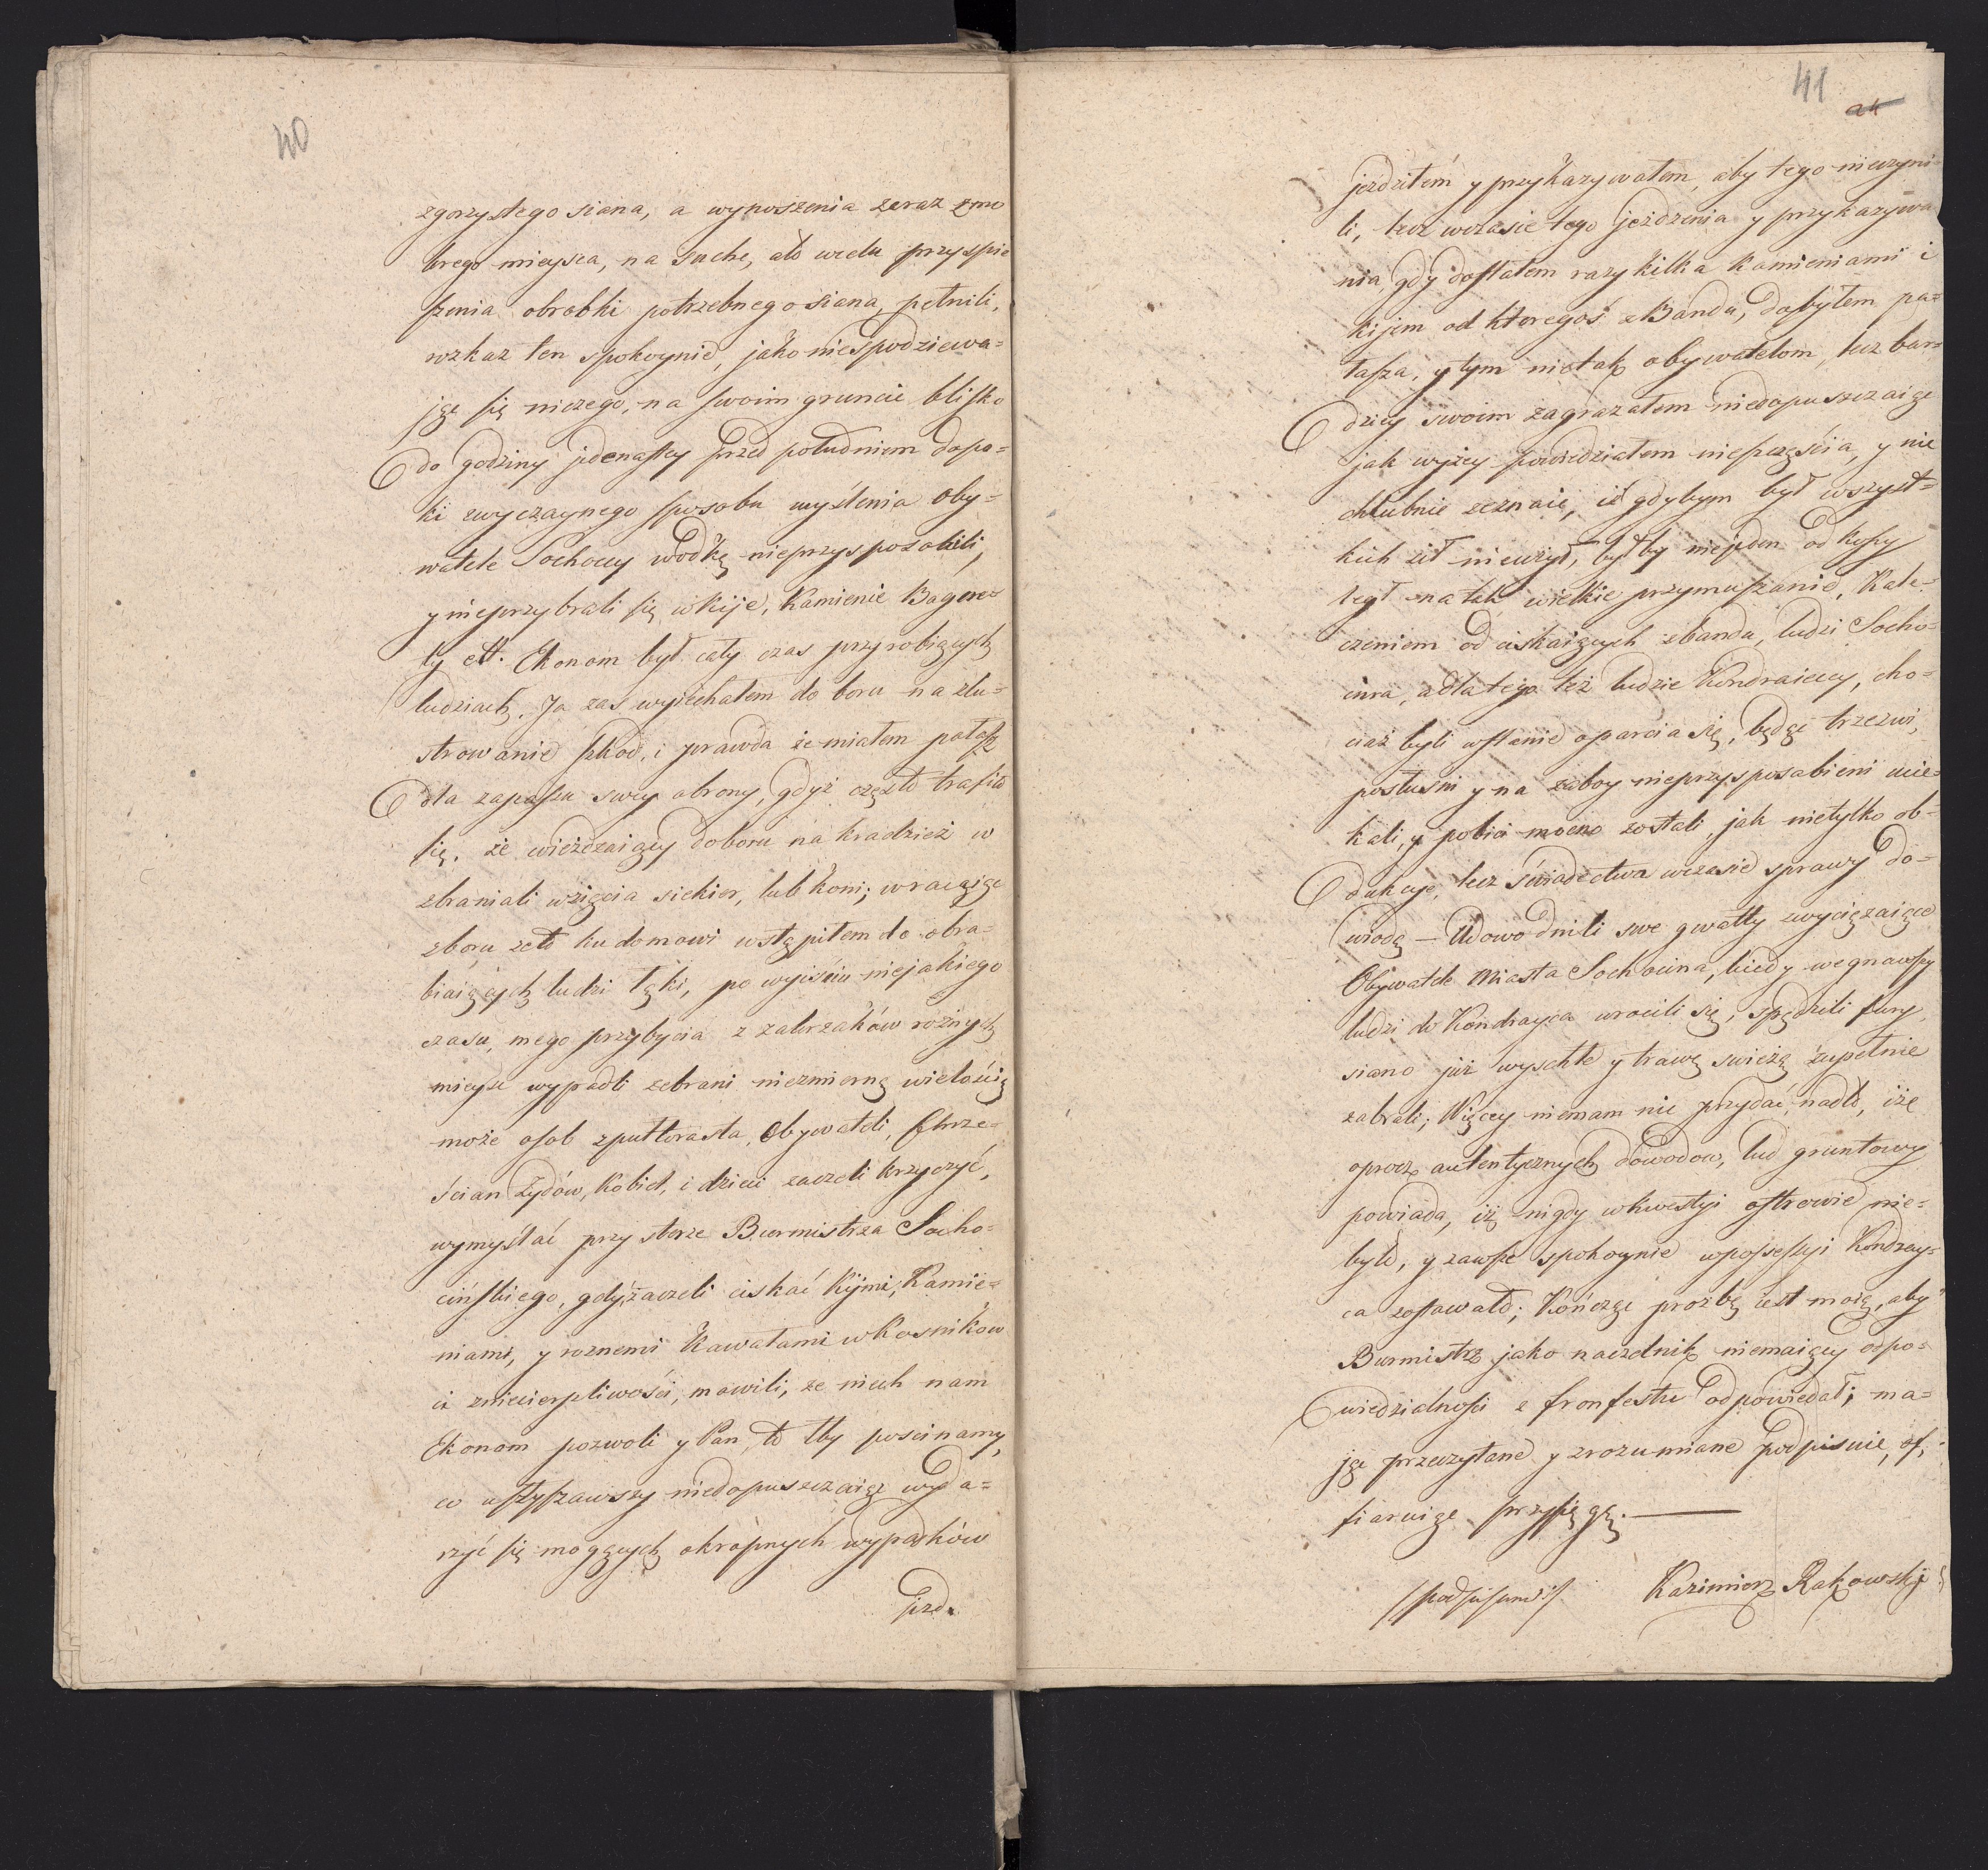 40
zgorzystego siana, a wynoszenia zaraz zmo
krego mieysca, na suche, ato wcelu przyspie
szenia obrobki potrzebnego siana, pełnili,
rozkaz ten spokoynie, jako niespodziewa=
jąc się niczego, na swoim gruncie blisko
do godziny jedenastey przed południem dopo=
ki zwyczaynego sposobu myślenia oby=
watele Sochoccy wodkę nieprzysposobili,
y nieprzybrali się wkije, Kamienie
ty ett. Ekonom był cały czas przy robiących
ludziach, Ja zas wyjechałem do boru na zlu=
strowanie szkod, i prawda że miałem pałasz
dla zapasu swey obrony, gdyż często trafiło
się, że wieżdzaiący doboru na kradzież w
zbraniali wzięcia siekier, lub koni; wracaiąc
zboru zoto ku domowi wstąpiłem do obra=
biaiących ludzi łąki, po wyiściu niejakiego
czasu, mego przybycia z zakrzaków rożnych
mieysc wypadli zebrani niezmierną wielością
może osob zpułtorasta, Obywateli, Chrze=
ścian Żydów, Kobiet, i dzieci zaczeli krzyczyć,
wymyślać przy sterze Burmistrza Socho=
cińskiego, gdyż zaczeli ciskać Kijmi, Kamie=
niami, y roznemi Kawałami w Kosników
ci zniecierpliwości, mowili, ze niech nam
Ekonom pozwoli y Pan, to łby poscinamy,
co usłyszawszy niedopuszczaiąc wyda=
rzyć się mogących okropnych wypadków
jezd.
41
jezdziłem y przykazywałem, aby tego nieczyni
li, lecz wczasie tego jeżdzenia y przykazywa
nia, gdy dostałem razy kilka kamieniami i
kijem od któregoś zBandu, dobyłem pa=
łasza, y tym nietak obywatelom, lecz bar=
dziey swoim zagrażałem niedopuszczaiąc
jak wyżey powiedziałem nieszczęścia, y nie
chlubnie zeznaię, iż gdybym był wszyst=
kich sił nieużył, byłby niejeden od kosy
legł na tak wielkie przymuszanie, Kale=
czeniem od ciskaiących zbandu, ludzi Socho=
cina, a dla tego też ludzie Kondraieccy, cho=
ciaż byli wstanie oparcia się, będąc trzezwi,
posłuśni y na zaboy nieprzysposabieni ucie=
kali, y pobici mocno zostali, jak nietylko ob=
dukcye, lecz świadectwa wczasie sprawy do=
wiodą — Udowodnili swe gwałty zwyciężaiące
Obywatele Miasta Sochocina, kiedy wegnawszy
ludzi do Kondrayca wrocili się, spędzili fury,
siano już wyschłe y trawę swieżą zupełnie
zabrali; Więcey niemam nic przydać, nadto, iże
oprocz autentycznych dowodow, lud gruntowy
powiada, iż nigdy wkwestyi ostrowie nie=
było, y zawsze spokoynie wpossessyi Kondray=
ca zostawało; Kończąc prozbą iest moią, aby
Burmistrz jako naczelnik niemaiący odpo=
wiedzialności z fronfestu odpowiedał; ma=
jąc przeczytane y zrozumiane podpisuie, of,
fiaruiąc przysięgę. —
/:podpisano:/ Kazimierz Rakowski